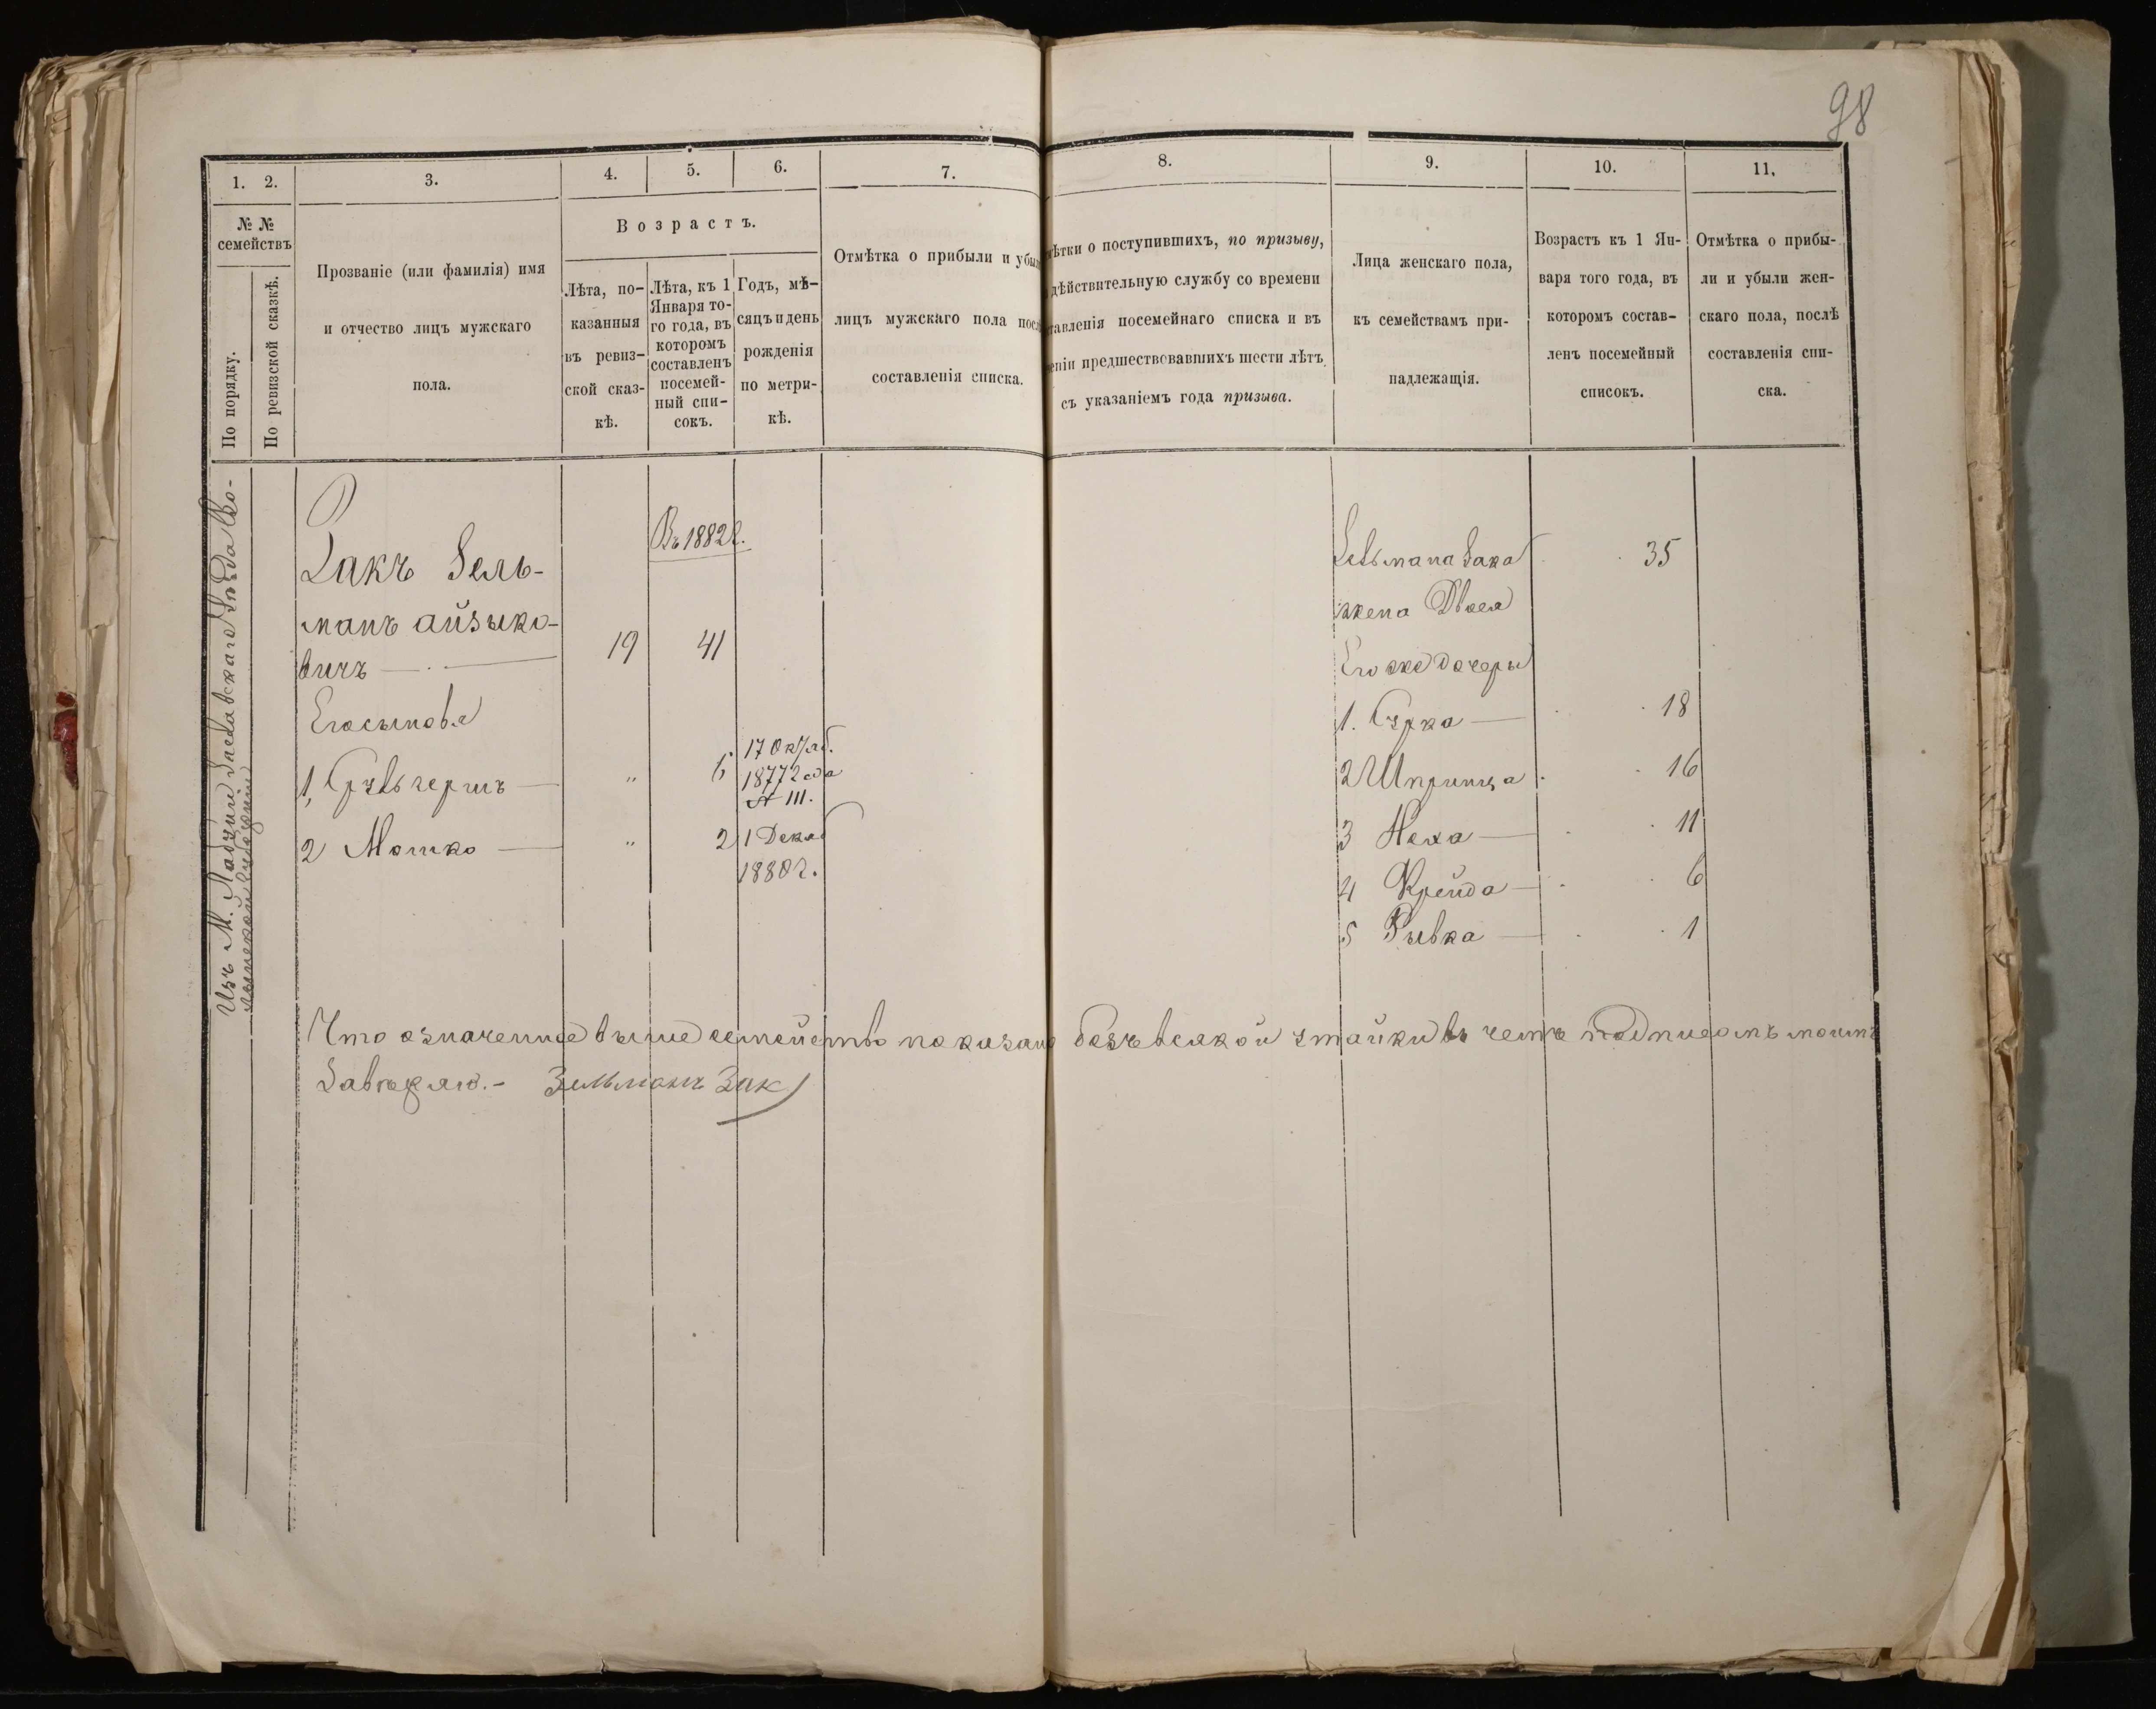 98
1. 2.
№ №
семействъ
По порядку.
По ревизской сказкѣ.
3.
Прозваніе (или фамилія) имя
и отчество лицъ мужскаго
пола.
4.
5.
6.
Возрастъ.
Лѣта, по-
казанныя
въ ревиз-
ской сказ-
кѣ.
Лѣта, къ 1
Января то-
го года, въ
которомъ
составленъ
посемей-
ный спи-
сокъ.
Годъ, мѣ-
сяцъ и день
рожденія
по метри-
кѣ.
7.
Отмѣтка о прибыли и убы
лицъ мужскаго пола посл
составленія списка.
8.
мѣтки о поступившихъ, по призыву,
дѣйствительную службу со времени
тавленія посемейнаго списка и въ
еніи предшествовавшихъ шести лѣтъ
съ указаніемъ года призыва.
9.
Лица женскаго пола,
къ семействамъ при-
надлежащія.
10.
Возрастъ къ 1 Ян-
варя того года, въ
которомъ состав-
ленъ посемейный
списокъ.
11.
Отмѣтка о прибы-
ли и убыли жен-
скаго пола, послѣ
составленія спи-
ска.
Изъ М. Лабунь Заславскаго Уѣзда Во-
лынской Губерніи
Въ 1882 г.
Закъ Зель-
манъ Айзыко-
вичъ — 19 41
Его сыновя
1, — " 6 17 Октяб.
1877 года
№ 111.
2 Мошко — " 2 1 Декаб
1880 г.
Зельмана Зака 35
жена Двося
Его же дочеры
1. Сурка — 18
2 Шпринца 16
3 Неха — 11
4 Крейда — 6
5 Рывка — 1
Что означенное выше семейство показано безъ всякой утайки въ чемъ подписомъ моимъ
Завѣряю. - Зельманъ Зак